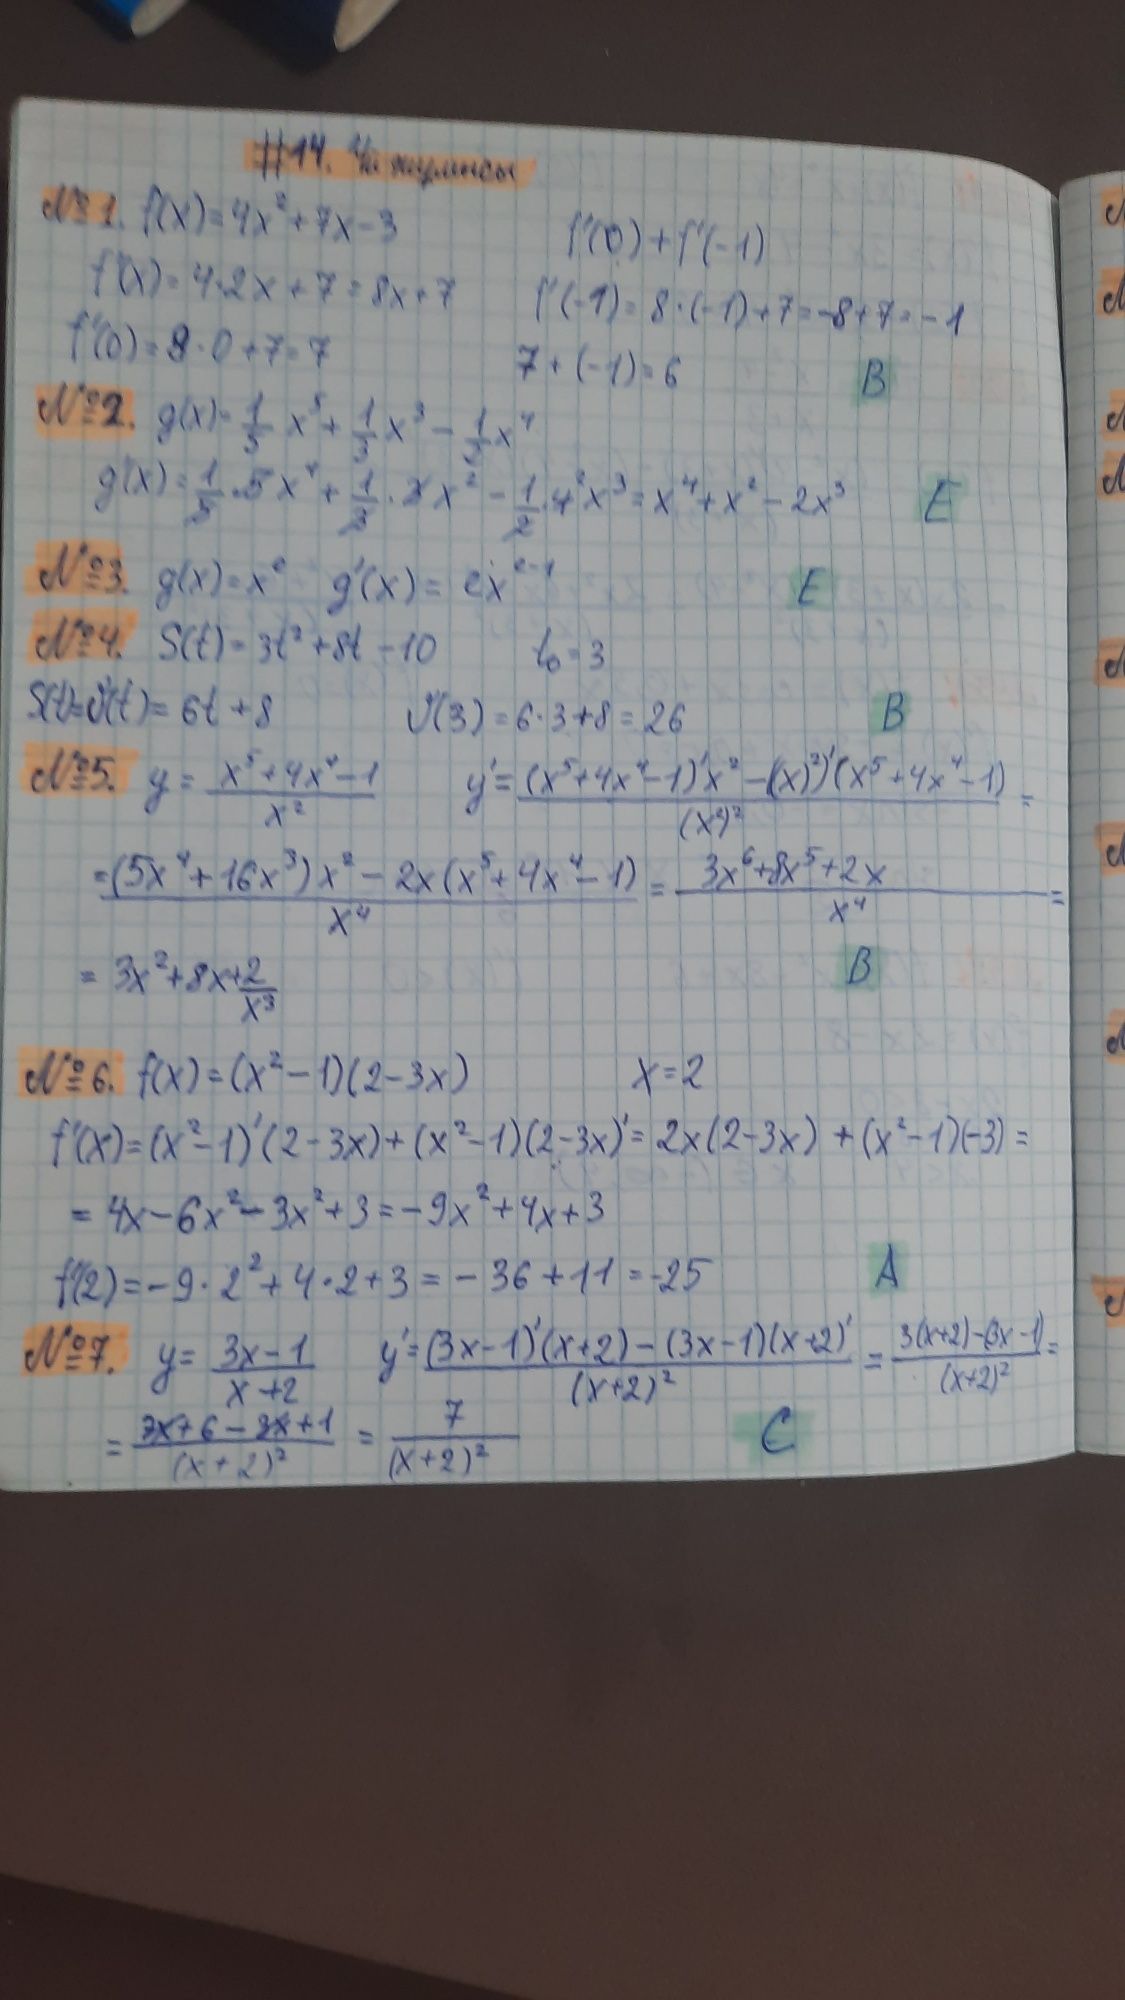 #14. Үй жұмысы
№1. f(x)=4x²+7x-3 f'(0)+f'(-1)
f'(x)=4·2x+7=8x+7 f'(-1)=8·(-1)+7=-8+7=-1
f'(0)=8·0+7=7 7+(-1)=6 B
№2. g(x)=1/5 x⁵+1/3 x³-1/2 x⁴
g'(x)=1/5·5x⁴+1/3·3x²-1/2·4²x³=x⁴+x²-2x³ E
№3. g(x)=x^e g'(x)=ex^(e-1) E
№4. S(t)=3t²+8t-10 t₀=3
S'(t)=υ(t)=6t+8 υ(3)=6·3+8=26 B
№5. y=(x⁵+4x⁴-1)/x² y'=((x⁵+4x⁴-1)'x²-(x)²)'(x⁵+4x⁴-1))/(x²)²=
=((5x⁴+16x³)x²-2x(x⁵+4x⁴-1))/x⁴=(3x⁶+8x⁵+2x)/x⁴=
=3x²+8x+2/x³ B
№6. f(x)=(x²-1)(2-3x) x=2
f'(x)=(x²-1)'(2-3x)+(x²-1)(2-3x)'=2x(2-3x)+(x²-1)(-3)=
=4x-6x²-3x²+3=-9x²+4x+3
f'(2)=-9·2²+4·2+3=-36+11=-25 A
№7. y=(3x-1)/(x+2) y'=((3x-1)'(x+2)-(3x-1)(x+2)')/(x+2)²=(3(x+2)-(3x-1))/(x+2)²=
=(3x+6-3x+1)/(x+2)²=7/(x+2)² C